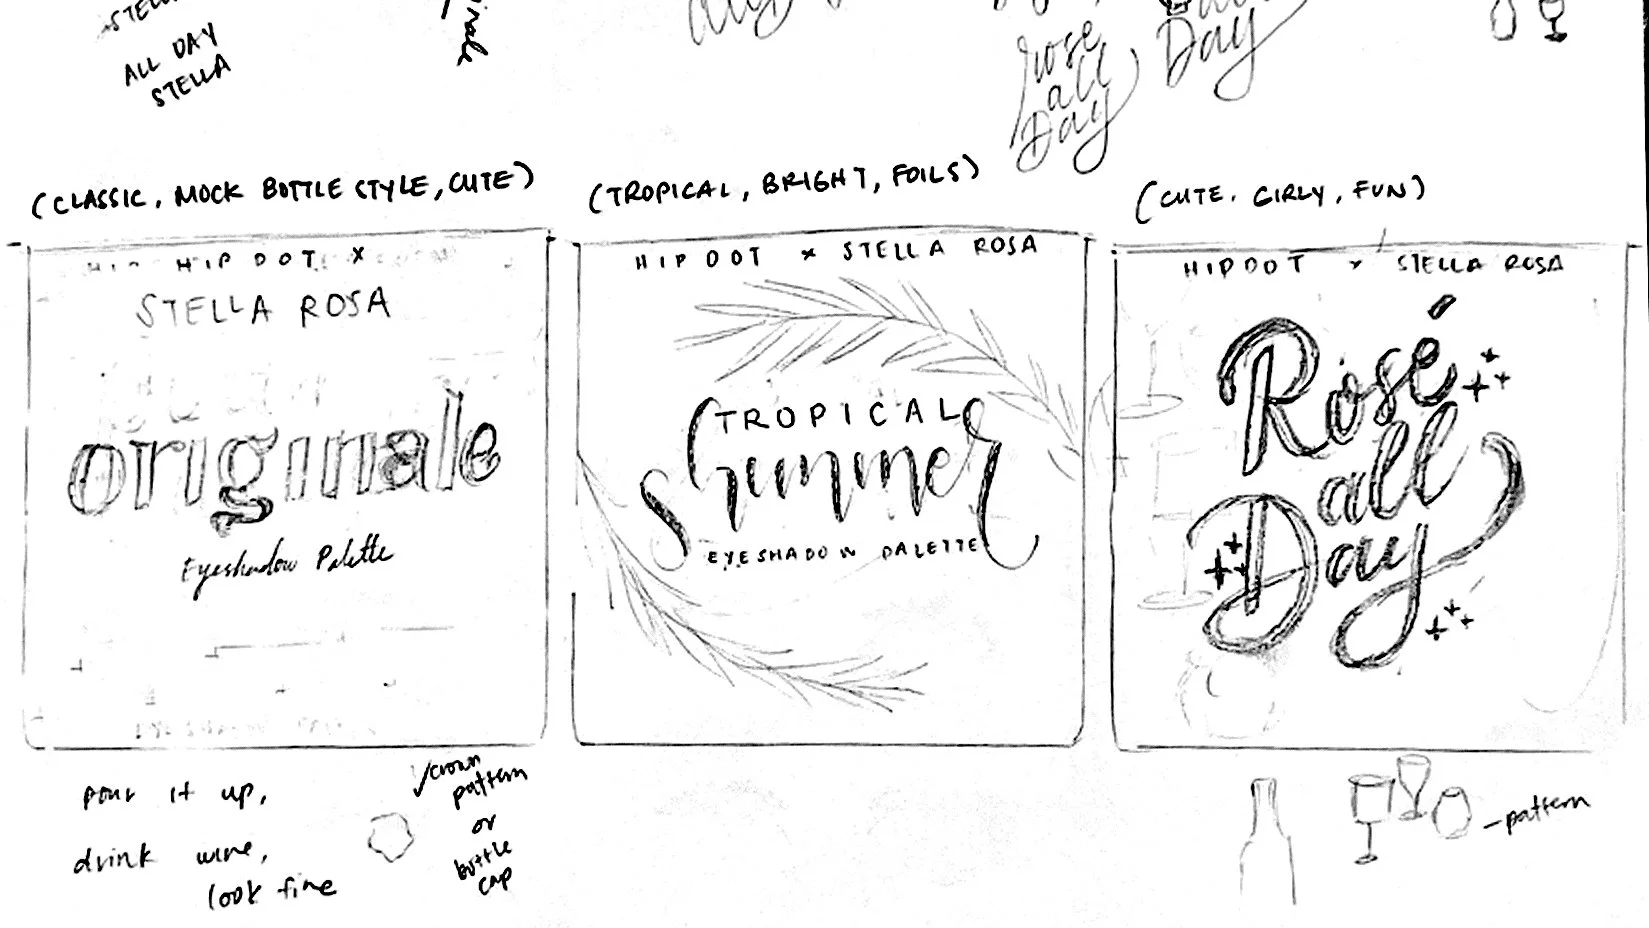 ALL DAY
STELLA
rosé
all
Day
Day
(CLASSIC, MOCK BOTTLE STYLE, CUTE)
HIP DOT x
STELLA ROSA
originale
Eyeshadow Palette
pour it up,
drink wine,
look fine
crown
pattern
or
bottle
cap
(TROPICAL, BRIGHT, FOILS)
HIPDOT x STELLA ROSA
TROPICAL
Summer
EYESHADOW PALETTE
(CUTE, GIRLY, FUN)
HIPDOT x STELLA ROSA
Rosé
all
Day
pattern